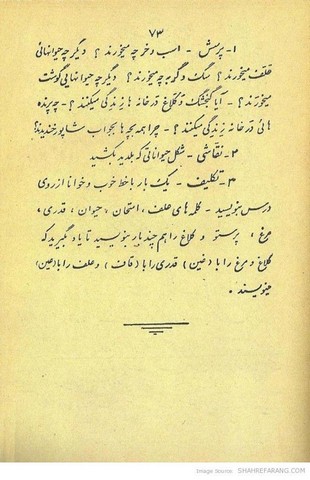 ۷۳
۱- پرسش - اسب و خر چه میخورند ؟ دیگر چه حیوانهائی
علف میخورند ؟ سگ و گربه چه میخورند ؟ دیگر چه حیوانهایی گوشت
میخورند ؟ - آیا گنجشک و کلاغ در خانه ها زندگی میکنند ؟ - چه پرنده
هائی در خانه زندگی میکنند ؟ - چرا همه بچه ها بجواب شاپور خندیدند؟
۲- نقاشی - شکل حیواناتی که بلدید بکشید
۳- تکلیف - یک بار با خط خوب و خوانا از روی
درس بنویسید - کلمه های علف ، امتحان ، حیوان ، قدری ،
مرغ ، پرستو و کلاغ را هم چند بار بنویسید تا یاد بگیرید که
کلاغ و مرغ را با (غین) قدری را با (قاف) و علف را با (عین)
مینویسند .
Image Source: SHAHREFARANG.COM